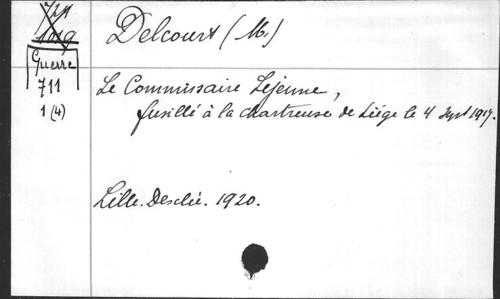 Delcourt (M.)
Guerre
711
1 (4)
Le Commissaire Lejeune,
fusillé à la Chartreuse de Liége le 4 Sept 1917.
Lille. Desclée. 1920.